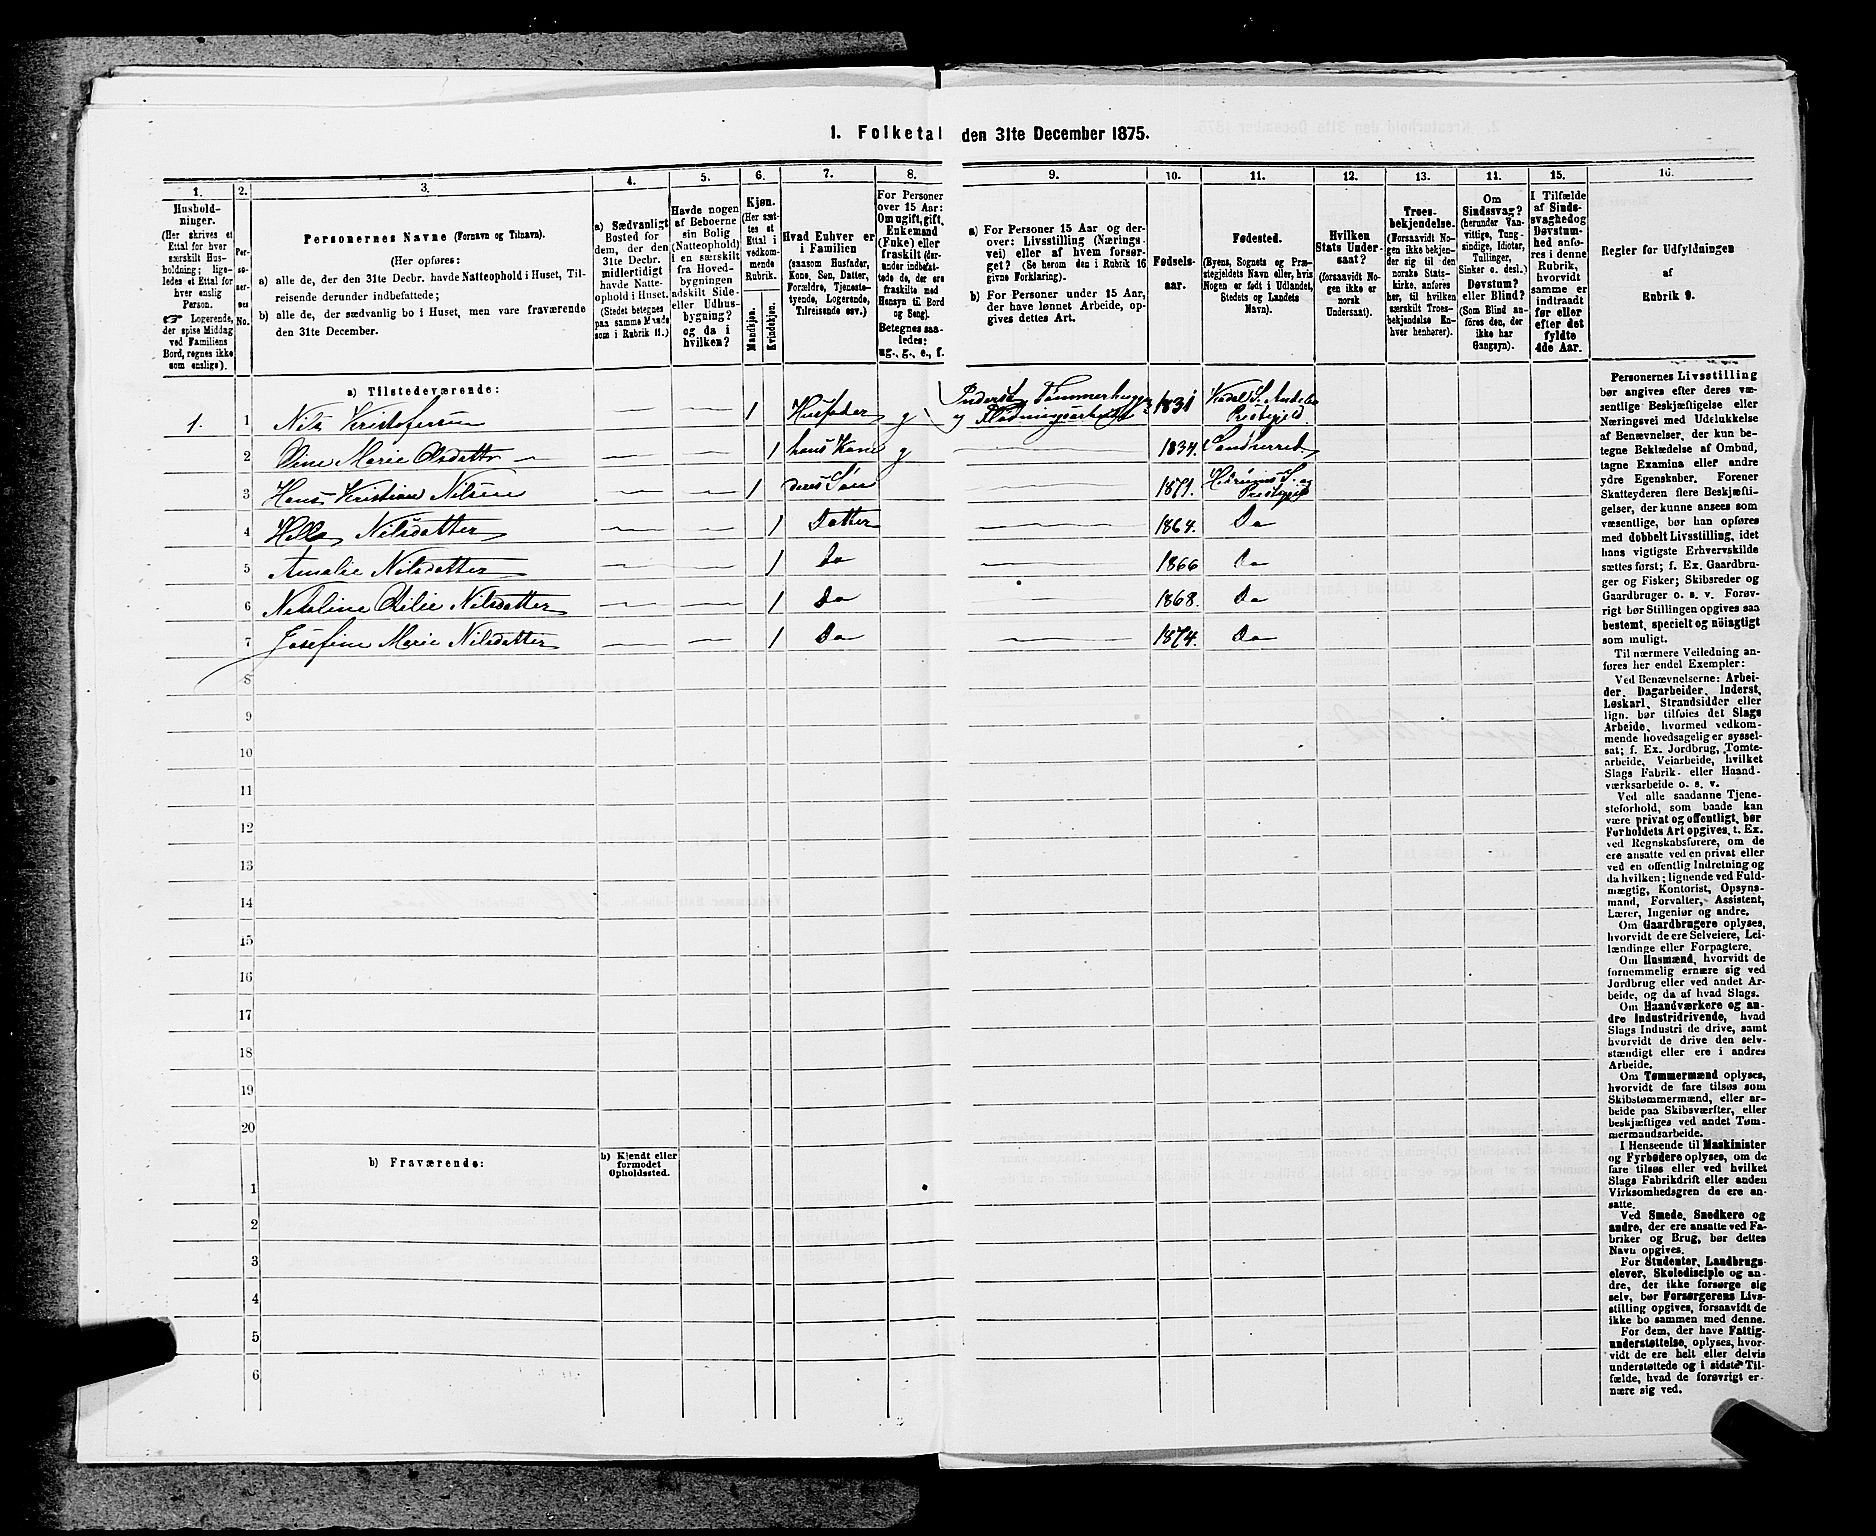 1. Folketal den 31te December 1875.
1.
2.
3.
4.
5.
6.
7.
8.
9.
10.
11.
12.
13.
11.
15.
16.
Hushold-
ninger.
(Her skrives et
Ettal for hver
særskilt Hus-
holdning; lige-
ledes et Ettal for
hver enslig
Person.
Logerende,
der spise Middag
ved Familiens
Bord, regnes ikke
som enslige).
Per-
so-
ner-
nes
No.
Personernes Navne (Fornavn og Tilnavn).
(Her opføres:
a) alle de, der den 31te Decbr. havde Natteophold i Huset, Til-
reisende derunder indbefattede;
b) alle de, der sædvanlig bo i Huset, men vare fraværende
den 31te December.
a) Sædvanligt
Bosted for
dem, der den
31te Decbr.
midlertidigt
havde Natte-
ophold i Huset.
(Stedet betegnes
paa samme Maade
som i Rubrik 11.)
Havde nogen
af Beboerne
sin Bolig
(Natteophold)
i en særskilt
fra Hoved-
bygningen
adskilt Side-
eller Udhus-
bygning?
og da i
hvilken?
Kjøn.
(Her sæt-
tes et
Ettal i
vedkom-
mende
Rubrik.
Mandkjøn.
Kvindekjøn.
Hvad Enhver er
i Familien
(saasom Husfader,
Kone, Søn, Datter,
Forældre, Tjeneste-
tyende, Logerende,
Tilreisende osv.)
For Personer
over 15 Aar:
Om ugift, gift,
Enkemand
(Enke) eller
fraskilt (her-
under indbefat-
tede de, der ere
fraskilte med
Hensyn til Bord
og Seng).
Betegnes saa-
ledes:
ug., g., e., f.
a) For Personer 15 Aar og der-
over: Livsstilling (Nærings-
vei) eller af hvem forsør-
get? (Se herom den i Rubrik 16
givne Forklaring).
b) For Personer under 15 Aar,
der have lønnet Arbeide, op-
gives dettes Art.
Fødsels-
aar.
Fødested.
(Byens, Sognets og Præ-
stegjeldets Navn eller, hvis
Nogen er født i Udlandet,
Stedets og Landets
Navn).
Hvilken
Stats Under-
saat?
(forsaavidt No-
gen ikke er
norsk
Undersaat).
Troes-
bekjendelse.
(Forsaavidt No-
gen ikke bekjen-
der sig til den
norske Stats-
kirke, anføres
her, til hvilken
særskilt Troes-
bekjendelse En-
hver henhører).
Om
Sindssvag?
(herunder Van-
vittige, Tung-
sindige, Idioter,
Tullinger,
Sinker o. desl.)
Døvstum?
eller Blind?
(Som Blind an-
føres den, der
ikke har
Gangsyn).
I Tilfælde
af Sinds-
svaghed og
Døvstum-
hed anfø-
res i denne
Rubrik,
hvorvidt
samme er
indtraadt
før eller
efter det
fyldte
4de Aar.
Regler for Udfyldningen
af
Rubrik 9.
a) Tilstedeværende:
1. 1 Nils Kristofersen 1 Husfader g Inderst, Tømmerhugger 1831
og Flødningsarbeider Prestegjeld
2 Marie Olsdatter 1 hans Kone g 1834.
3 Hans Kristian Nilsen 1 deres Søn 1871. S. og
Prestegjeld
4 Nilsdatter 1 Datter 1864. Do
5 Amalie Nilsdatter 1 Do 1866 Do
6 Nilsdatter 1 Do 1868. Do
7 Josefine Marie Nilsdatter 1 Do 1874. Do
8
9
10
11
12
13
14
15
16
17
18
19
20
b) Fraværende:
b) Kjendt eller
formodet
Opholdssted.
1
2
3
4
5
6
Personernes Livsstilling
bør angives efter deres væ-
sentlige Beskjæftigelse eller
Næringsvei med Udelukkelse
af Benævnelser, der kun be-
tegne Beklædelse af Ombud,
tagne Examina eller andre
ydre Egenskaber. Forener
Skatteyderen flere Beskjæfti-
gelser, der kunne ansees som
væsentlige, bør han opføres
med dobbelt Livsstilling, idet
hans vigtigste Erhvervskilde
sættes først; f. Ex. Gaardbru-
ger og Fisker; Skibsreder og
Gaardbruger o. s. v. Forøv-
rigt bør Stillingen opgives saa
bestemt, specielt og nöiagtigt
som muligt.
Til nærmere Veiledning an-
føres her endel Exempler:
Ved Benævnelserne: Arbei-
der, Dagarbeider, Inderst,
Løskarl, Strandsidder eller
lign. bør tilføies det Slags
Arbeide, hvormed vedkom-
mende hovedsagelig er syssel-
sat; f. Ex. Jordbrug, Tomte-
arbeide, Veiarbeide, hvilket
Slags Fabrik- eller Haand-
værksarbeide o. s. v.
Ved alle saadanne Tjene-
steforhold, som baade kan
være privat og offentligt, bør
Forholdets Art opgives, t. Ex.
ved Regnskabsførere, om de
ere ansatte ved en privat eller
ved en offentlig Indretning og
da hvilken; lignende ved Fuld-
mægtig, Kontorist, Opsyns-
mand, Forvalter, Assistent,
Lærer, Ingeniør og andre.
Om Gaardbrugere oplyses,
hvorvidt de ere Selveiere, Lei-
lændinge eller Forpagtere.
Om Husmænd, hvorvidt de
fornemmelig ernære sig ved
Jordbrug eller ved andet Ar-
beide, og da af hvad Slags.
Om Haandværkere og an-
dre Industridrivende, hvad
Slags Industri de drive, samt
hvorvidt de drive den selv-
stændigt eller ere i andres
Arbeide.
Om Tømmermænd oplyses,
hvorvidt de fare tilsøs som
Skibstømmermænd, eller ar-
beide paa Skibsværfter, eller
beskjæftiges ved andet Tøm-
mermandsarbeide.
I Henseende til Maskinister
og Fyrbødere oplyses, om de
fare tilsøs eller ved hvilket
Slags Fabrikdrift eller anden
Virksomhedsgren de ere an-
satte.
Ved Smede, Snedkere og
andre, der ere ansatte ved Fa-
briker og Brug, bør dettes
Navn opgives.
For Studenter, Landbrugs-
elever, Skoledisciple og an-
dre, der ikke forsørge sig
selv, bør Forsørgerens Livs-
stilling opgives, forsaavidt de
ikke bo sammen med denne.
For dem, der have Fattig-
understøttelse, oplyses, hvor-
vidt de ere helt eller delvis
understøttede og i sidste Til-
fælde, hvad de forøvrigt er-
nære sig ved.